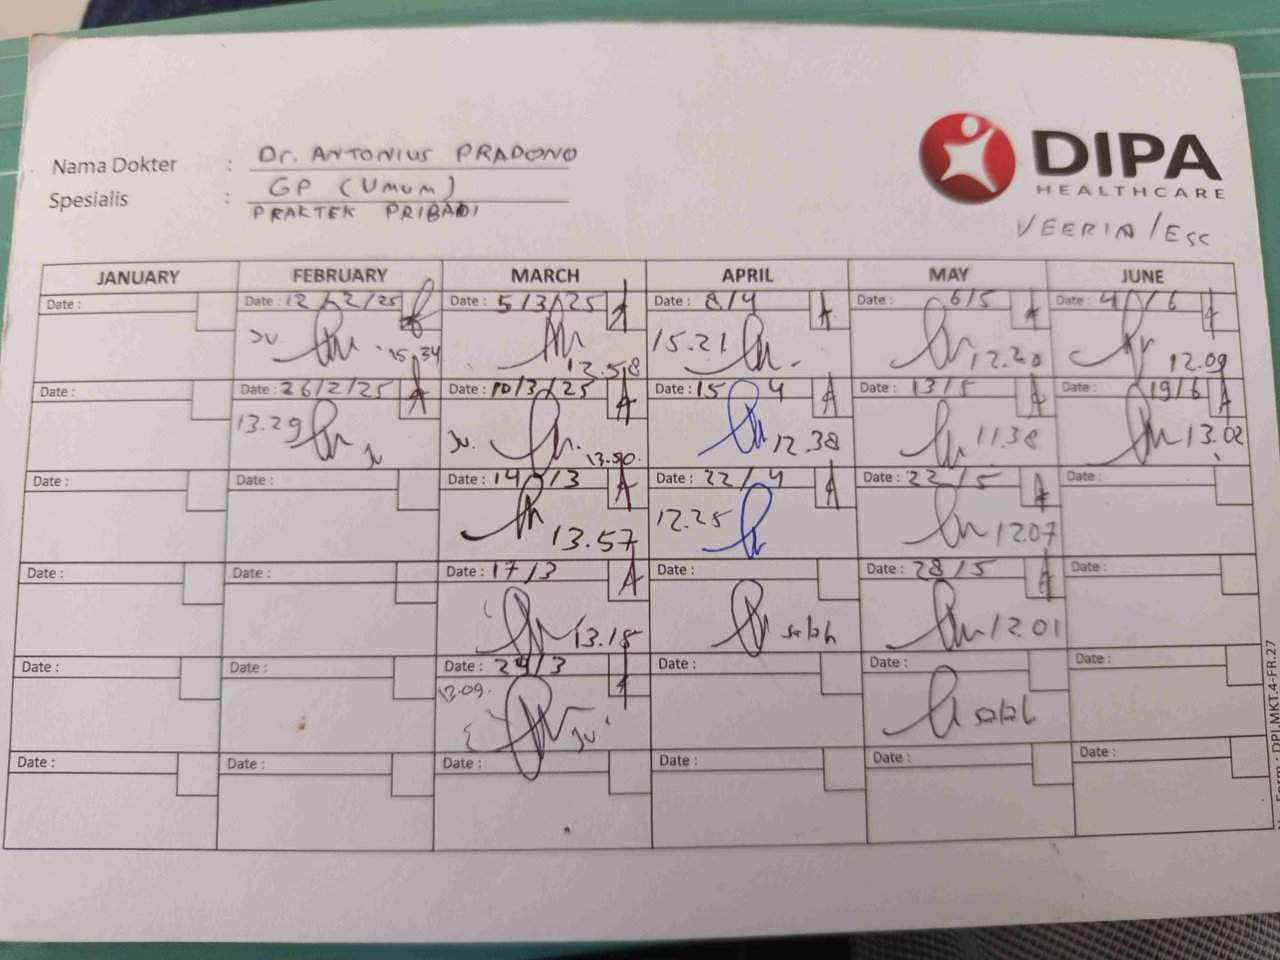 Nama Dokter : Dr. ANTONIUS PRADONO
Spesialis : GP (UMUM)
PRAKTEK PRIBADI
DIPA
HEALTHCARE
VEERIA/ESC
JANUARY FEBRUARY MARCH APRIL MAY JUNE
Date : Date : 12/2/25 Date : 5/3/25 Date : 8/4 Date : 6/5 Date : 4/6
15.34 12.58 15.21 12.20 12.09
Date : Date : 26/2/25 Date : 10/3/25 Date : 15/4 Date : 13/5 Date : 19/6
13.29 12.38 11.38 13.02
Date : Date : Date : 14/3 Date : 22/4 Date : 22/5 Date :
13.57 12.25 12.07
Date : Date : Date : 17/3 Date : Date : 28/5 Date :
13.18 salah 12.01
Date : Date : Date : 24/3 Date : Date : Date :
13.09. salah
Date : Date : Date : Date : Date : Date :
Form : DPI.MKT.4-FR.27